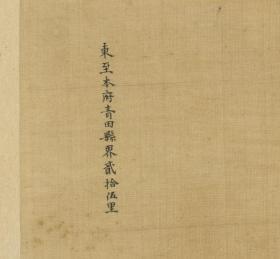 東至本府青田縣界貳拾伍里